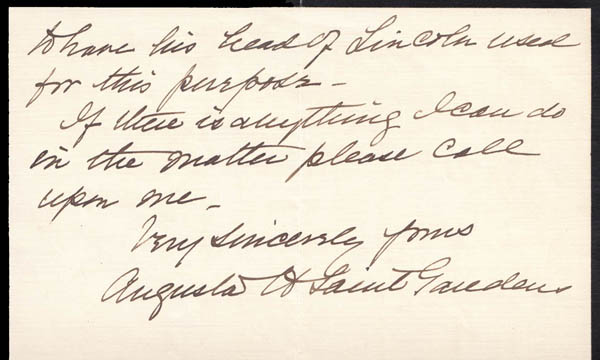 to have his head of Lincoln used
for this purpose –
If there is anything I can do
in the matter please call
upon me –
Very sincerely yours
Augusta H Saint Gaudens